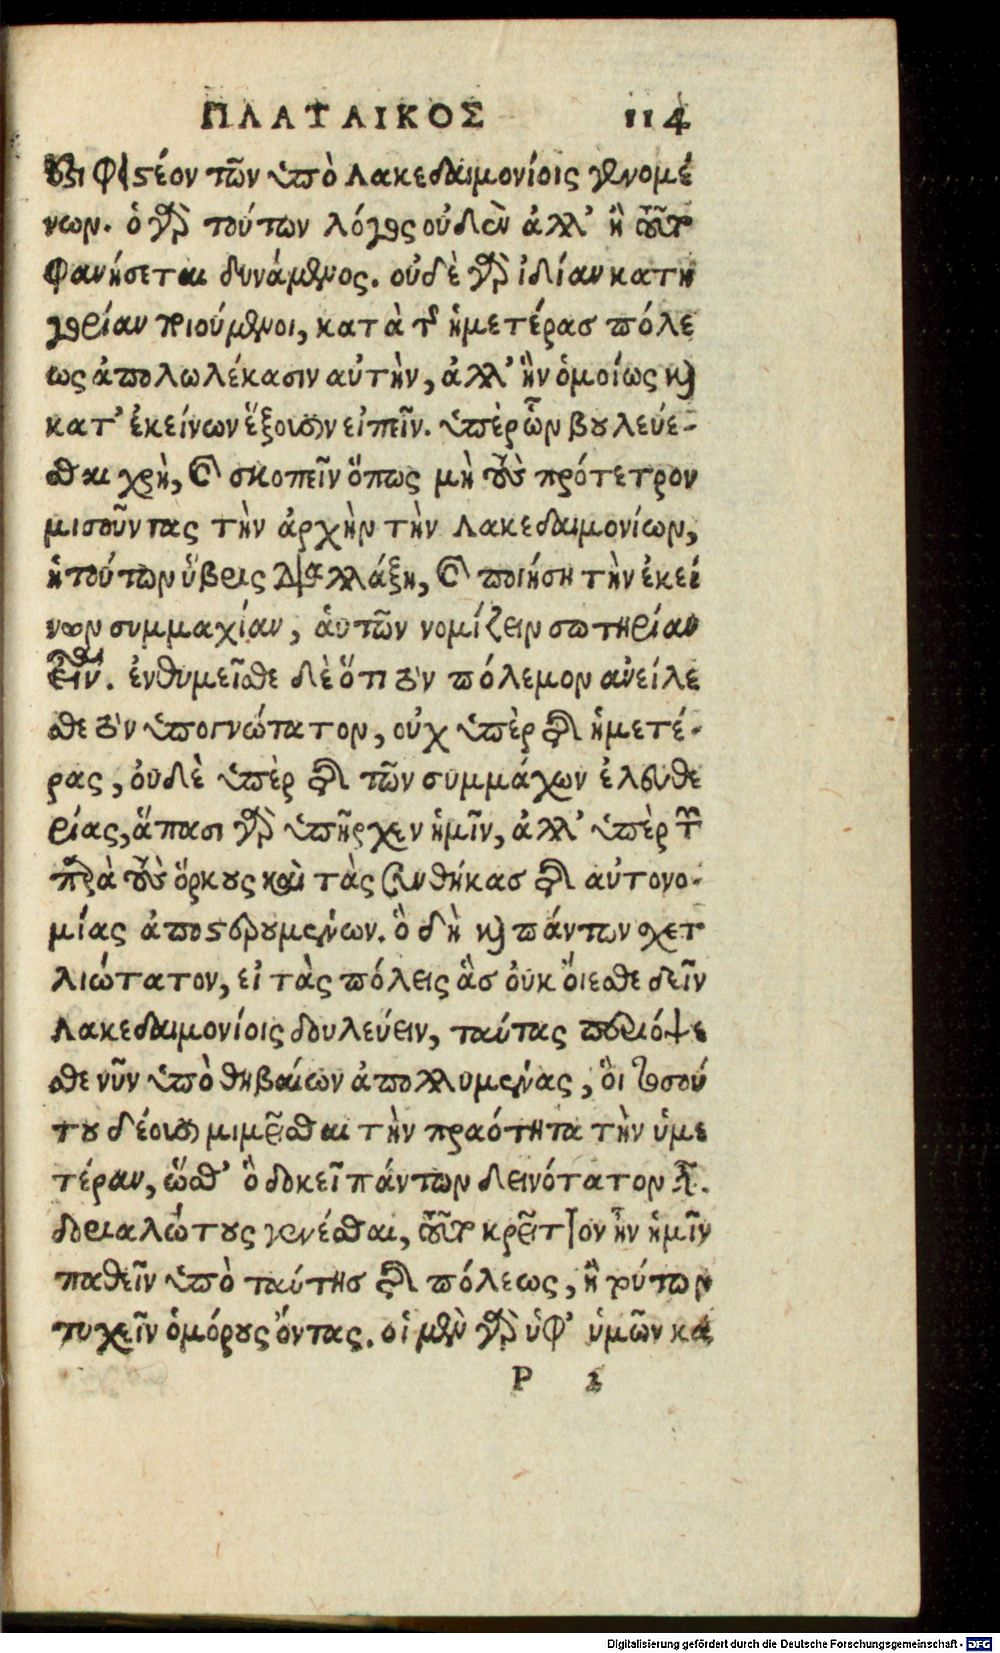 ΠΛΑΤΑΙΚΟΣ 114
αιφιστέον τῶν ὑπὸ Λακεδαιμονίοις γενομέ
νων. ὁ γὰρ τούτων λόγος οὐδὲν ἀλλ' ἢ τοῦτο
φανήσεται δυνάμενος. οὐδὲ γὰρ ἰδίαν κατη
γορίαν ποιούμενοι, κατὰ τῆς ἡμετέρας πόλε
ως ἀπολωλέκασιν αὐτὴν, ἀλλ' ἣν ὁμοίως καὶ
κατ' ἐκείνων ἕξουσιν εἰπεῖν. ὑπὲρ ὧν βουλεύε-
σθαι χρὴ, καὶ σκοπεῖν ὅπως μὴ τοὺς πρότετρον
μισοῦντας τὴν ἀρχὴν τὴν Λακεδαιμονίων,
ἡ τούτων ὕβρις διαλλάξῃ, καὶ ποιήσῃ τὴν ἐκεί
νων συμμαχίαν, ἁυτῶν νομίζειν σωτηρίαν
εἶναι. ἐνθυμεῖσθε δὲ ὅτι τὸν πόλεμον ἀνείλε
σθε τὸν ὑπογυώτατον, οὐχ ὑπὲρ τῆς ἡμετέ-
ρας, ὀυδὲ ὑπὲρ τῆς τῶν συμμάχων ἐλευθε
ρίας, ἅπασι γὰρ ὑπῆρχεν ἡμῖν, ἀλλ' ὑπὲρ τῶν
παρὰ τοὺς ὅρκους καὶ τὰς συνθήκας τῆς αὐτονο-
μίας ἀποστερουμένων. ὃ δὴ καὶ πάντων σχετ
λιώτατον, εἰ τὰς πόλεις ἃς ὀυκ ὄιεσθε δεῖν
Λακεδαιμονίοις δουλεύειν, ταύτας περιόψε
σθε νῦν ὑπὸ θηβαίων ἀπολλυμένας, ὃι τοσού
του δέουσι μιμεῖσθαι τὴν πραότητα τὴν ὑμε
τέραν, ὥσθ' ὃ δοκεῖ πάντων δεινότατον εἶναι.
δοριαλώτους γενέσθαι, τοῦτο κρεῖττον ἦν ἡμῖν
παθεῖν ὑπὸ ταύτης τῆς πόλεως, ἢ τούτων
τυχεῖν ὁμόρους ὄντας. οἱ μὲν γὰρ ὑφ' ὑμῶν κα
P 2
Digitalisierung gefördert durch die Deutsche Forschungsgemeinschaft - DFG